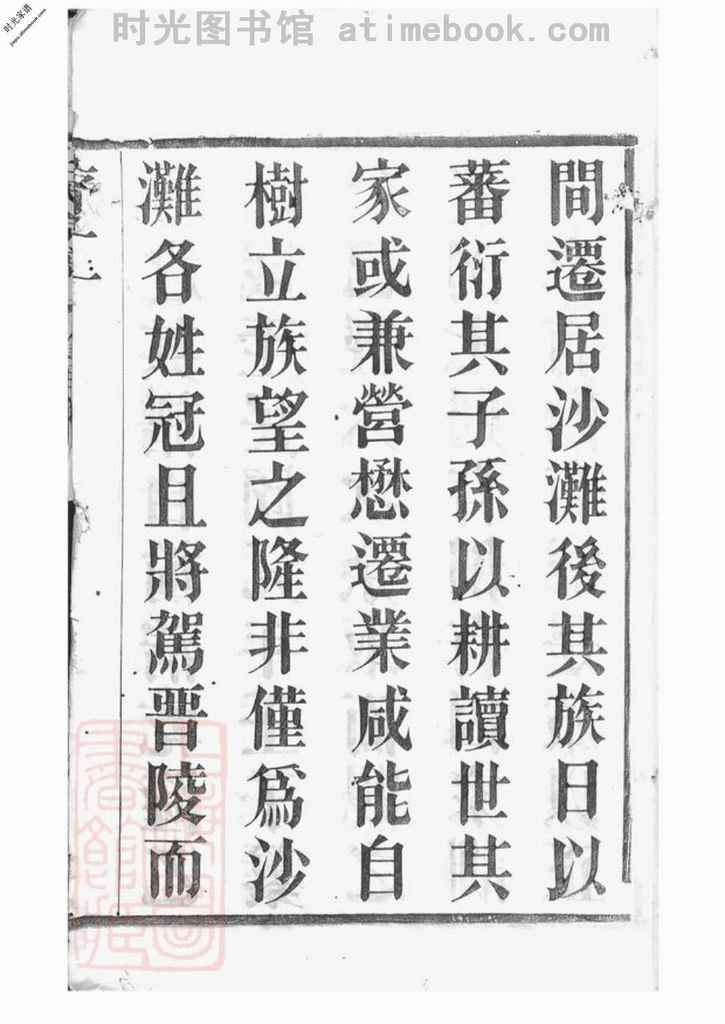 时光图书馆 atimebook.com
时光家谱
間遷居沙灘後其族日以
蕃衍其子孫以耕讀世其
家或兼營懋遷業咸能自
樹立族望之隆非僅爲沙
灘各姓冠且將駕晋陵而